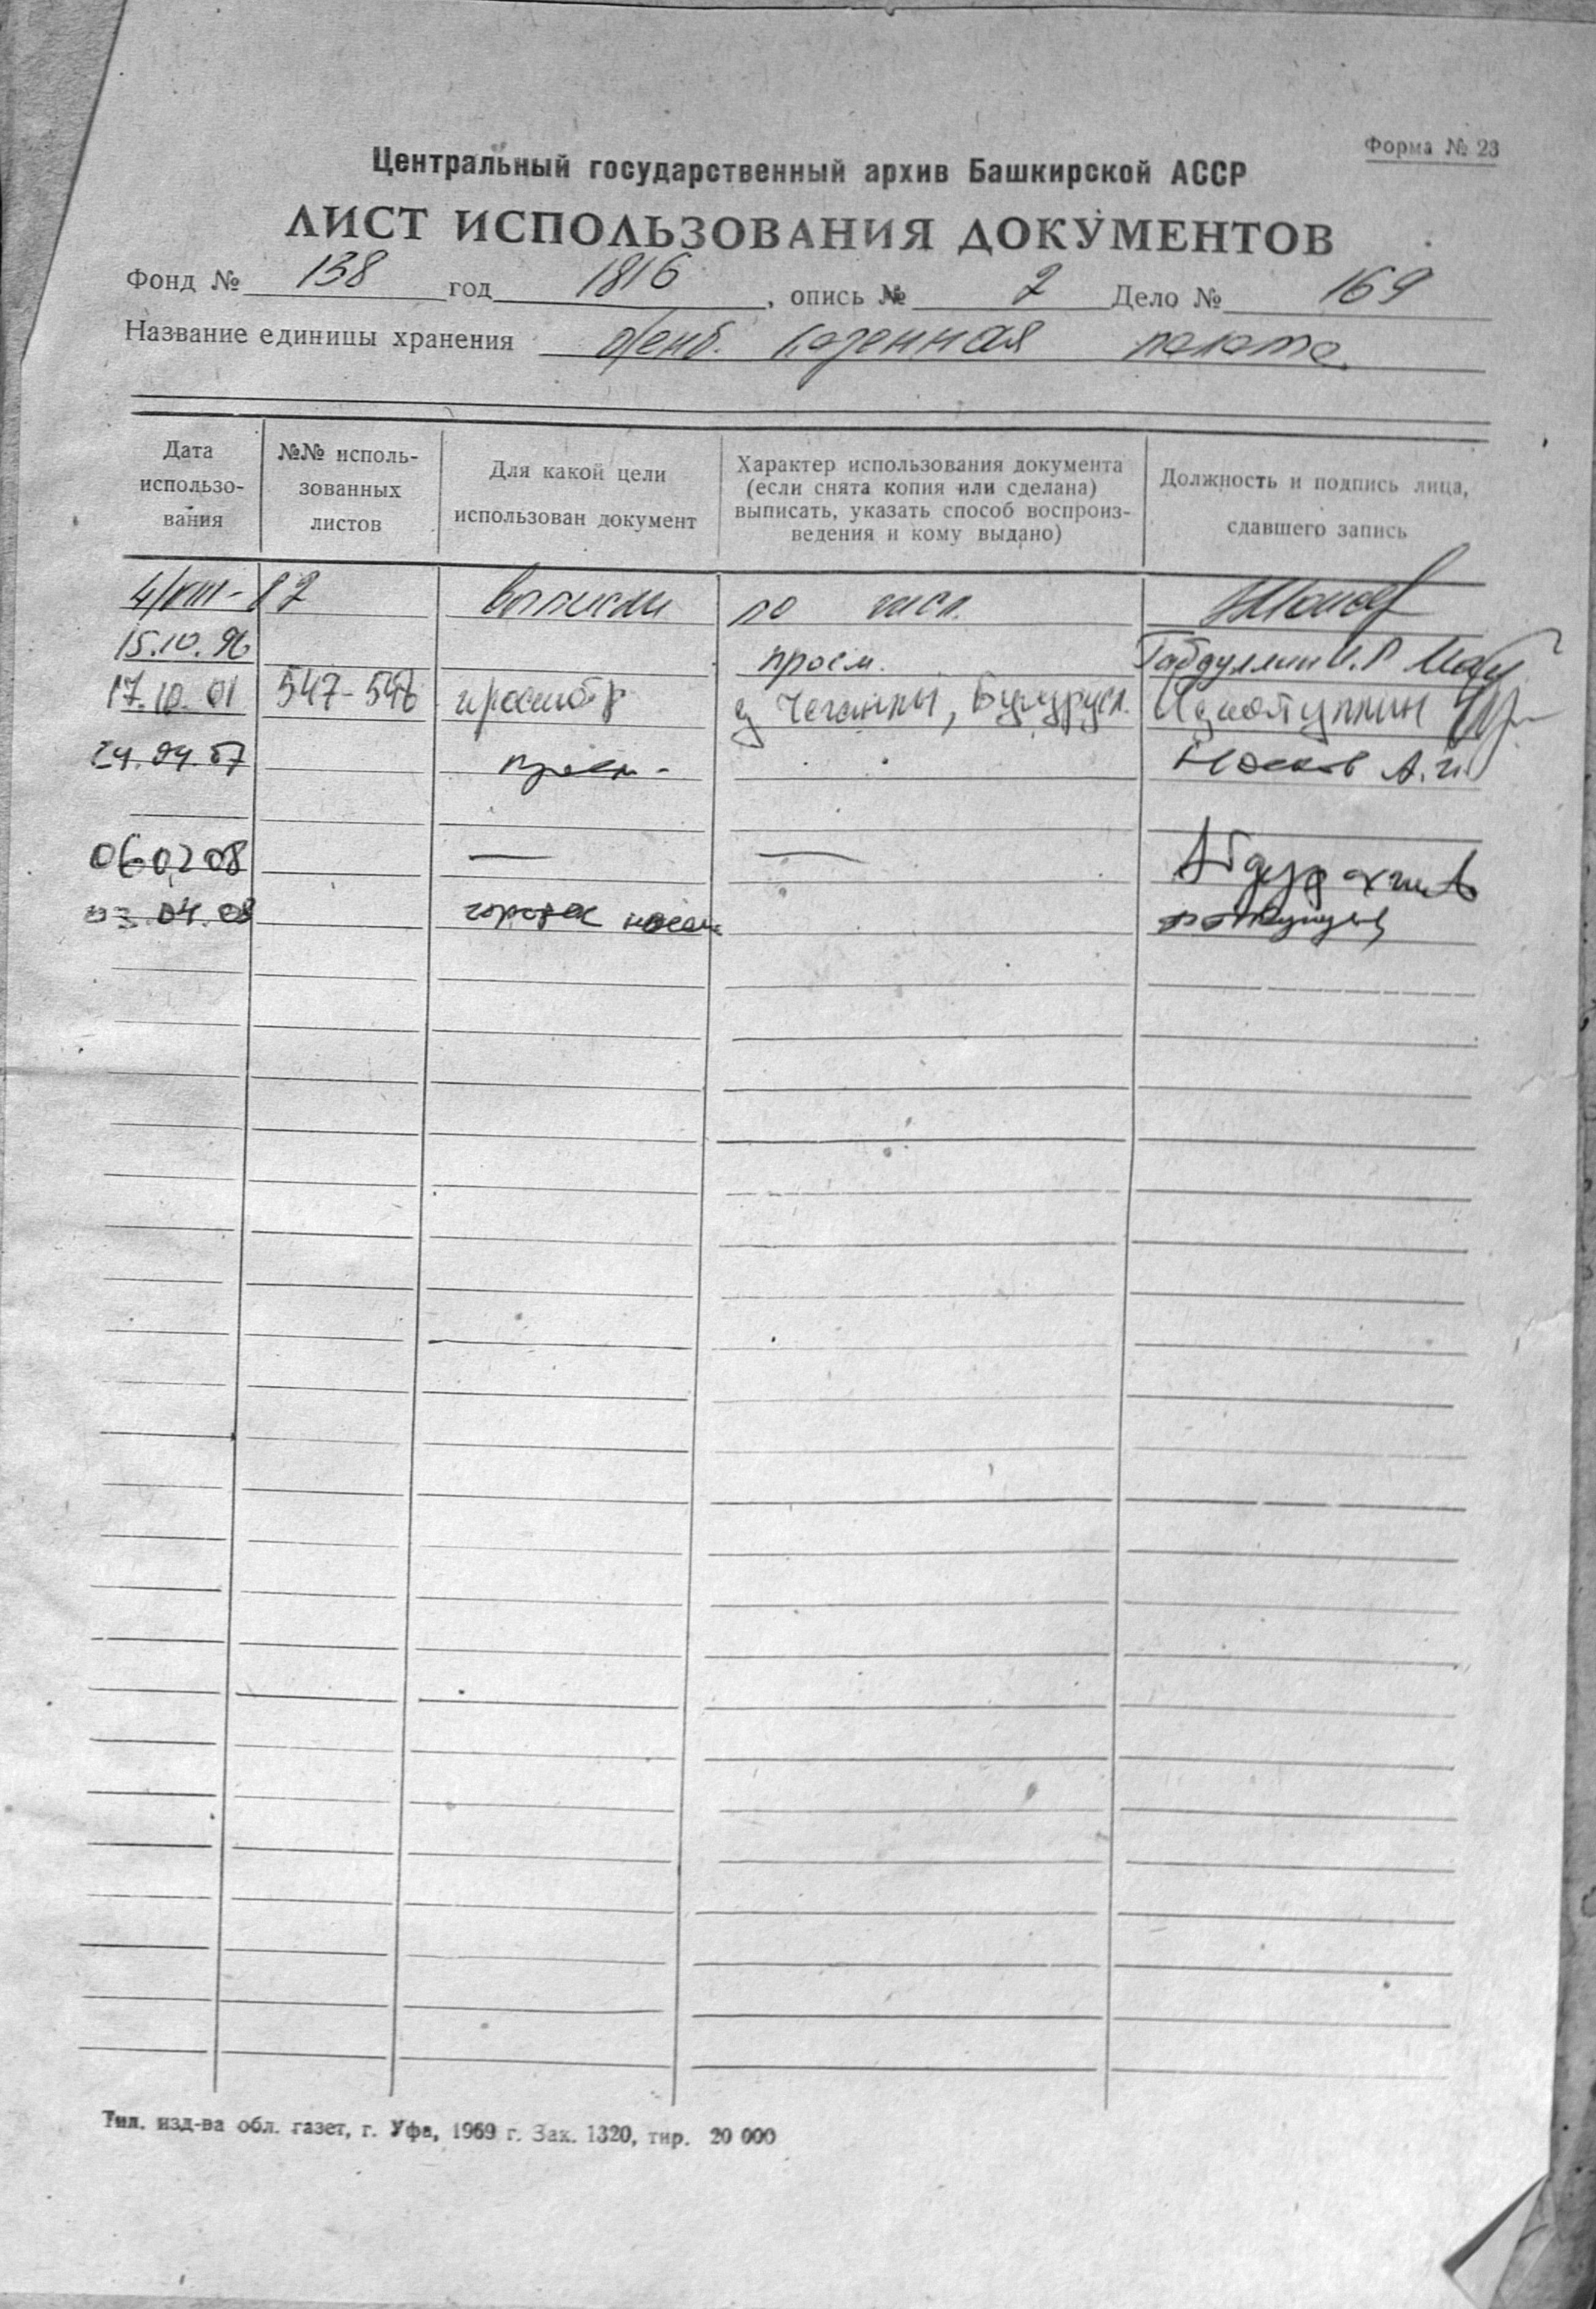 Форма № 23
Центральный государственный архив Башкирской АССР
ЛИСТ ИСПОЛЬЗОВАНИЯ ДОКУМЕНТОВ
Фонд № 138 год 1816, опись № 2 Дело № 169
Название единицы хранения Оренб. казенная палата
Дата
использо-
вания
№№ исполь-
зованных
листов
Для какой цели
использован документ
Характер использования документа
(если снята копия или сделана)
выписать, указать способ воспроиз-
ведения и кому выдано)
Должность и подпись лица,
сдавшего запись
4/VIII-82 выписки по числ.
15.10.96 просм. Габдуллин И.Р.
17.10.01 547-548 просмотр
24.04.07 просм. А.И.
06 02 08 — —
03.04.08
Тип. изд-ва обл. газет, г. Уфа, 1969 г. Зак. 1320, тир. 20 000